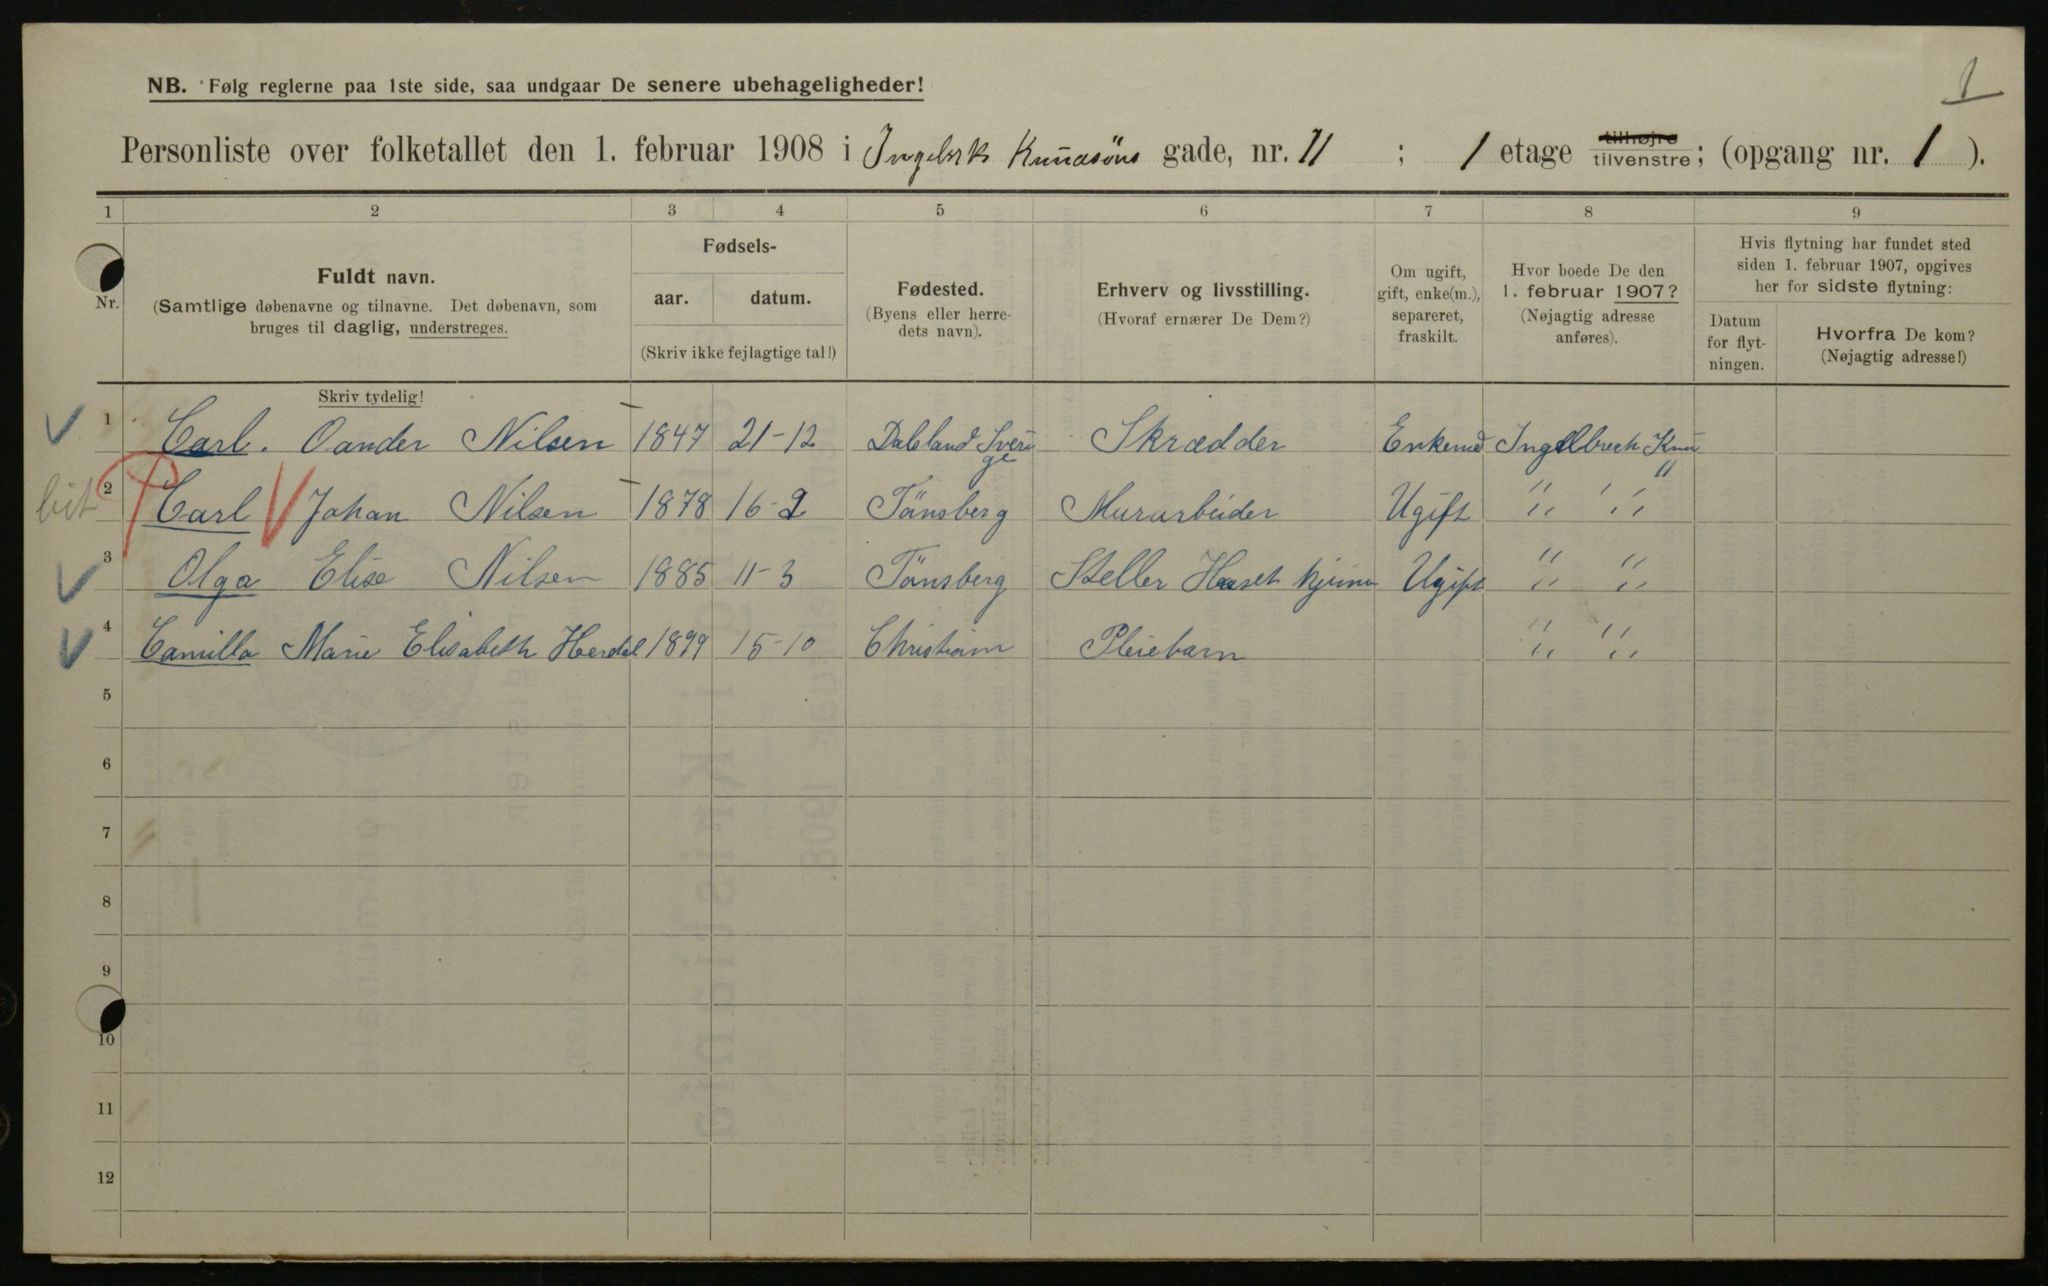 1
NB. Følg reglerne paa 1ste side, saa undgaar De senere ubehageligheder!
Personliste over folketallet den 1. februar 1908 i Ingelbrk Knudsöns gade, nr. 11 ; 1 etage tilhøjre tilvenstre; (opgang nr. 1 ).
1 2 3 4 5 6 7 8 9
Nr.
Fuldt navn.
(Samtlige døbenavne og tilnavne. Det døbenavn, som
bruges til daglig, understreges.
Skriv tydelig!
Fødsels-
aar. datum.
(Skriv ikke fejlagtige tal!)
Fødested.
(Byens eller herre-
dets navn).
Erhverv og livsstilling.
(Hvoraf ernærer De Dem?)
Om ugift,
gift, enke(m.),
separeret,
fraskilt.
Hvor boede De den
1. februar 1907?
(Nøjagtig adresse
anføres).
Hvis flytning har fundet sted
siden 1. februar 1907, opgives
her for sidste flytning:
Datum
for flyt-
ningen.
Hvorfra De kom?
(Nøjagtig adresse!)
1 Carl. Oander Nilsen 1847 21-12 Dalsland Sverige Skrædder Enkemd Ingelbrech Knu
2 Carl Johan Nilsen 1878 16-2 Tönsberg Murarbeider Ugift " "
3 Olga Elise Nilsen 1885 11-3 Tönsberg Steller Huset hjeme Ugift " "
4 Camilla Marie Elisabeth Herdal 1899 15-10 Christiania Pleiebarn " "
5
6
7
8
9
10
11
12